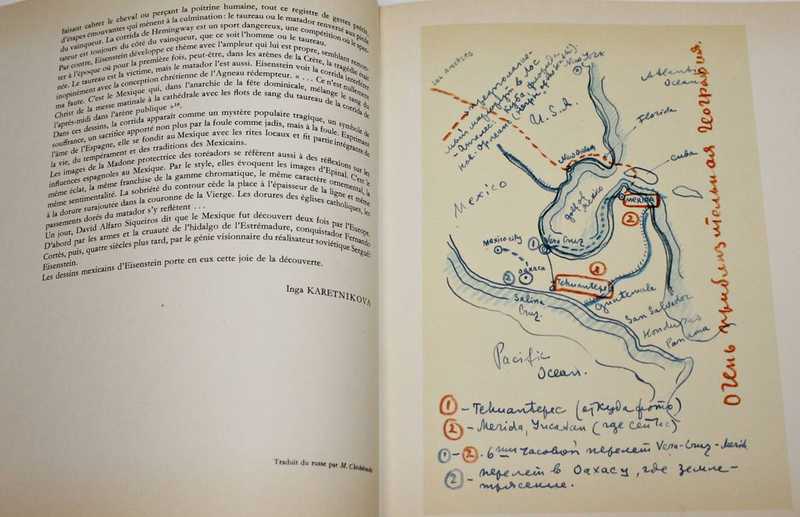 faisant cabrer le cheval ou perçant la poitrine humaine, tout ce registre de gestes précis,
d'étapes émouvantes qui mènent à la culmination : le taureau ou le matador renversé aux pieds
du vainqueur. La corrida de Hemingway est un sport dangereux, une compétition où le spec-
tateur est toujours du côté du vainqueur, que ce soit l'homme ou le taureau.
Par contre, Eisenstein développe ce thème avec l'ampleur qui lui est propre, semblant remon-
ter à l'époque où pour la première fois, peut-être, dans les arènes de la Crète, la tragédie était
née. Le taureau est la victime, mais le matador l'est aussi. Eisenstein voit la corrida interférer
inopinément avec la conception chrétienne de l'Agneau rédempteur. « . . . Ce n'est nullement
ma faute. C'est le Mexique qui, dans l'anarchie de la fête dominicale, mélange le sang du
Christ de la messe matinale à la cathédrale avec les flots de sang du taureau de la corrida de
l'après-midi dans l'arène publique »¹⁸.
Dans ces dessins, la corrida apparaît comme un mystère populaire tragique, un symbole de
souffrance, un sacrifice apporté non plus par la foule comme jadis, mais à la foule. Exprimant
l'âme de l'Espagne, elle se fondit au Mexique avec les rites locaux et fit partie intégrante de
la vie, du tempérament et des traditions des Mexicains.
Les images de la Madone protectrice des toréadors se réfèrent aussi à des réflexions sur les
influences espagnoles au Mexique. Par le style, elles évoquent les images d'Epinal. C'est le
même éclat, la même franchise de la gamme chromatique, le même caractère ornemental, la
même sentimentalité. La sobriété du contour cède la place à l'épaisseur de la ligne et même
à la dorure surajoutée dans la couronne de la Vierge. Les dorures des églises catholiques, les
passements dorés du matador s'y reflètent . . .
Un jour, David Alfaro Siqueiros dit que le Mexique fut découvert deux fois par l'Europe.
D'abord par les armes et la cruauté de l'hidalgo de l'Estrémadure, conquistador Fernando
Cortès, puis, quatre siècles plus tard, par le génie visionnaire du réalisateur soviétique Serguéi
Eisenstein.
Les dessins mexicains d'Eisenstein porte en eux cette joie de la découverte.
Inga KARETNIKOVA
Traduit du russe par M.
Los Angeles
New York
Atlantic
Ocean
U.S.A.
Florida
Cuba
Mexico
golf of
Mexico
MERIDA
2
Mexico city
1
Vera Cruz
2
Oaxaca
1
Tehuantepec
Salina
Cruz
Guatemala
San Salvador
Honduras
Panama
Pacific
Ocean.
Очень приблизительная География.
1 – Tehuantepec (откуда фото)
2 – Merida, Yucatan (где сейчас)
1 – 2 . 6ти часовой перелет Vera-Cruz – Merida
2 – перелет в Оахасу, где земле-
трясение.